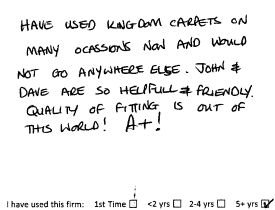 HAVE USED KINGDOM CARPETS ON
MANY OCASSIONS NOW AND WOULD
NOT GO ANYWHERE ELSE. JOHN &
DAVE ARE SO HELPFULL & FRIENDLY.
QUALITY OF FITTING IS OUT OF
THIS WORLD! A+!
I have used this firm: 1st Time ☐ <2 yrs ☐ 2-4 yrs ☐ 5+ yrs ☑